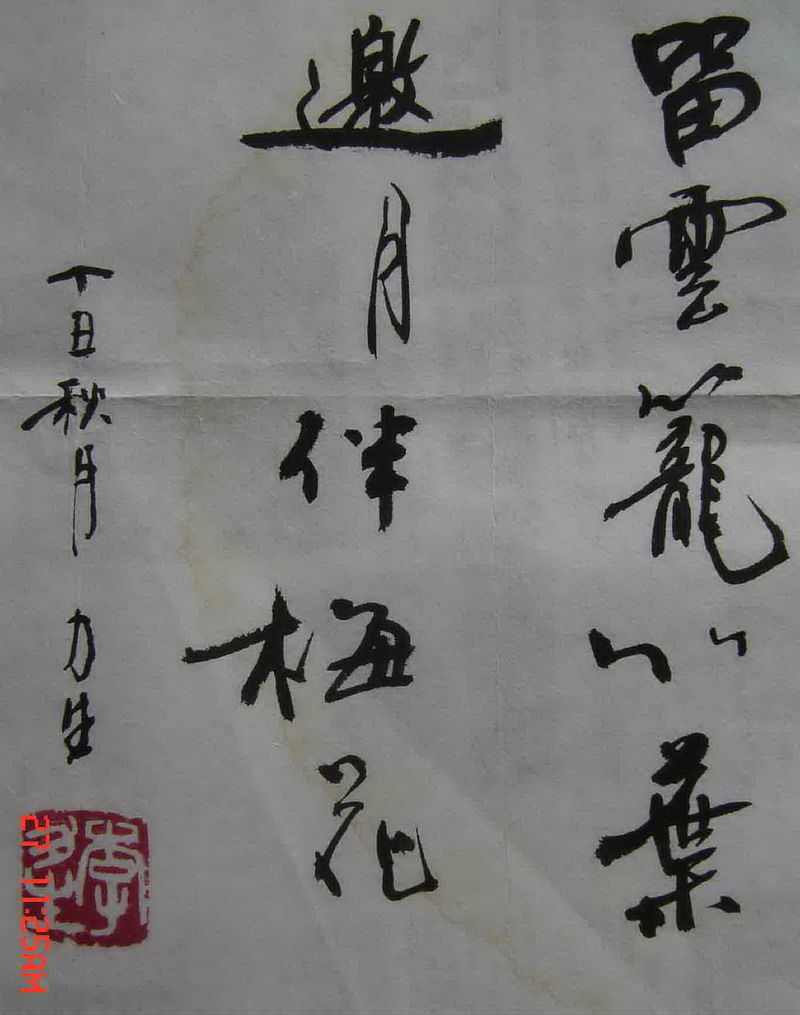 留雲籠竹葉
邀月伴梅花
丁丑秋月 力生
27 11:25AM